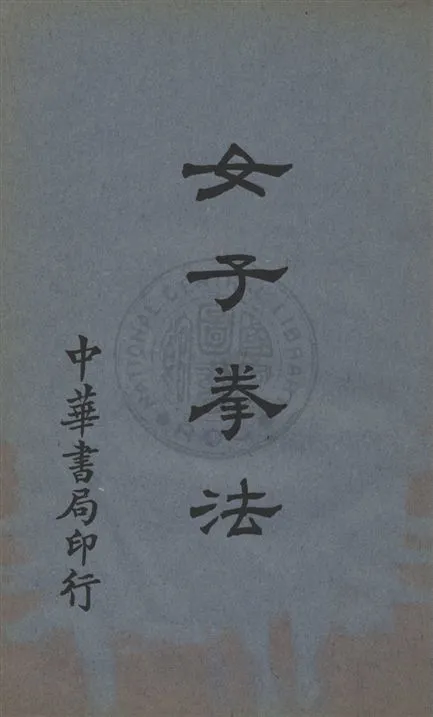 女子拳法
中華書局印行
NATIONAL C
LIBRAR